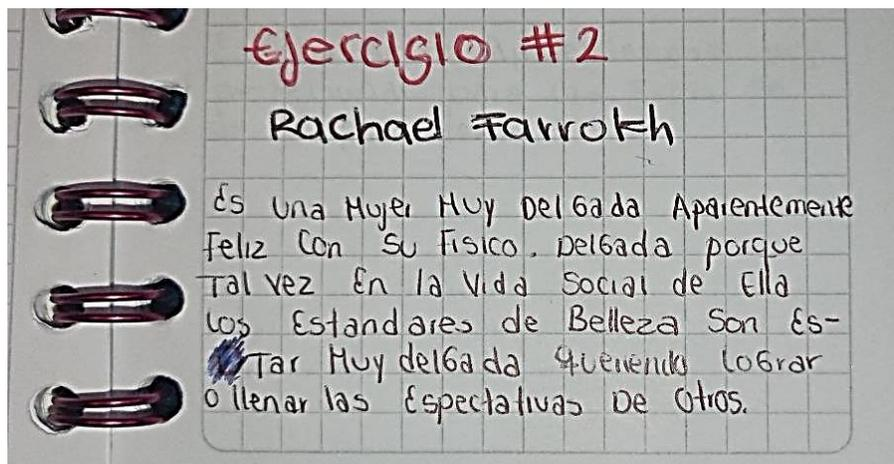 Ejercisio #2
Rachael Farrokh
Es una Mujer Muy Delgada Aparentemente
Feliz Con Su Fisico. Delgada porque
Tal vez En la Vida Social de Ella
los Estandares de Belleza Son Es-
Tar Muy delgada queriendo lograr
o llenar las Espectativas De Otros.